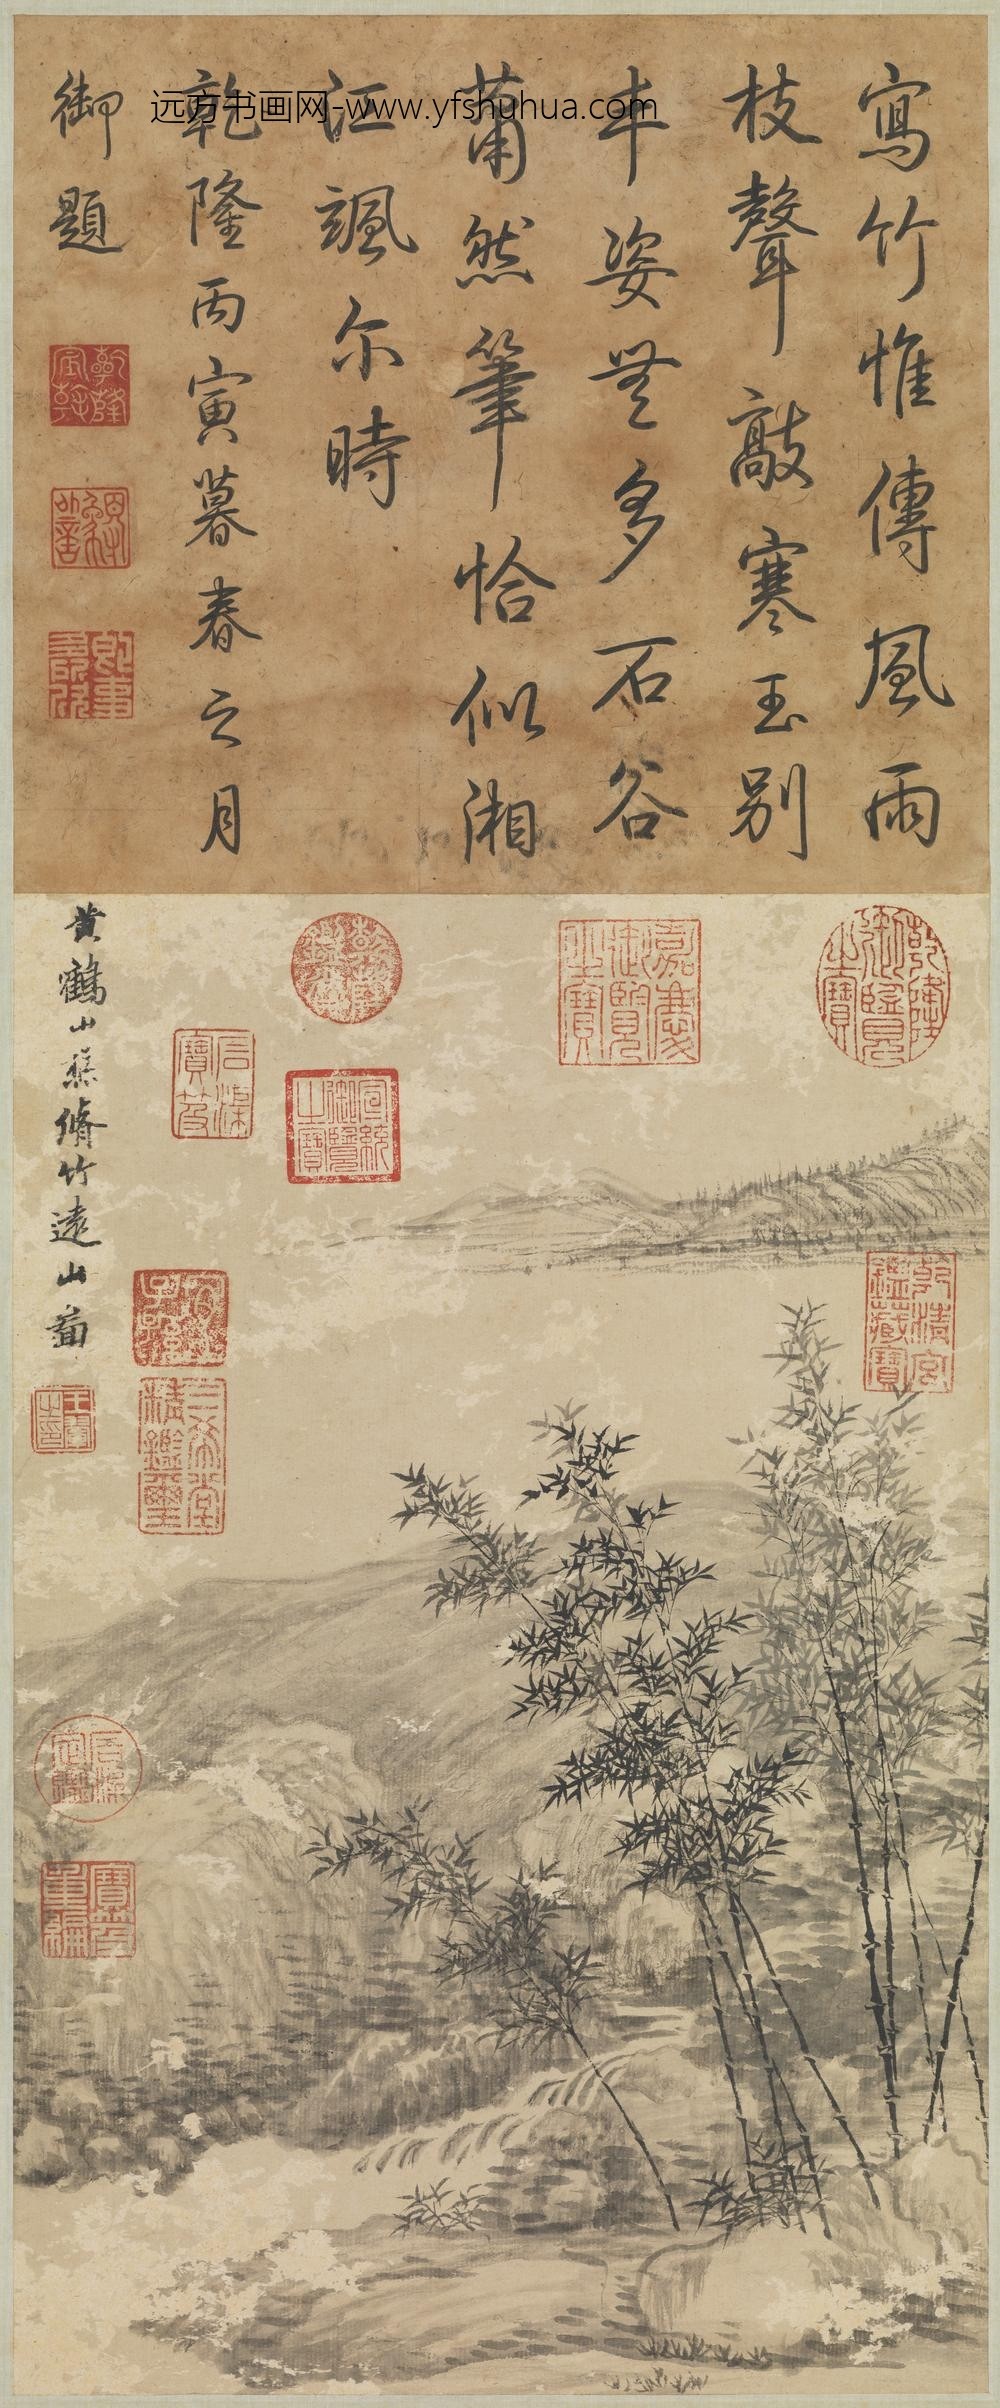 远方书画网-www.yfshuhua.com
寫竹惟傳風雨
枝聲敲寒玉別
丰姿無多石谷
蕭然筆恰似湘
江颯尔時
乾隆丙寅暮春之月
御題
乾隆宸翰
即事多所欣
乾隆御覽之寶
嘉慶御覽之寶
乾隆鑑賞
石渠寶笈
宣統御覽之寶
乾清宮鑑藏寶
宜子孫
三希堂精鑑璽
石渠定鑑
寶笈重編
黃鶴山樵脩竹遠山啚